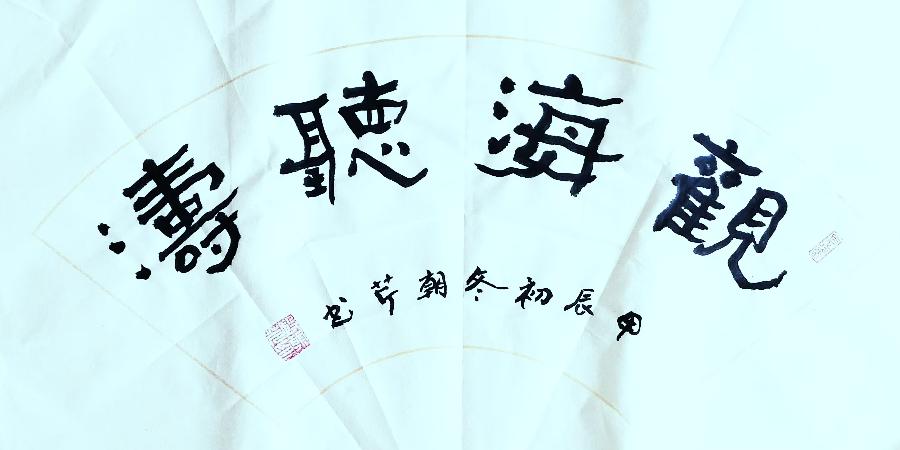 觀海聽濤
甲辰初冬朝芹书